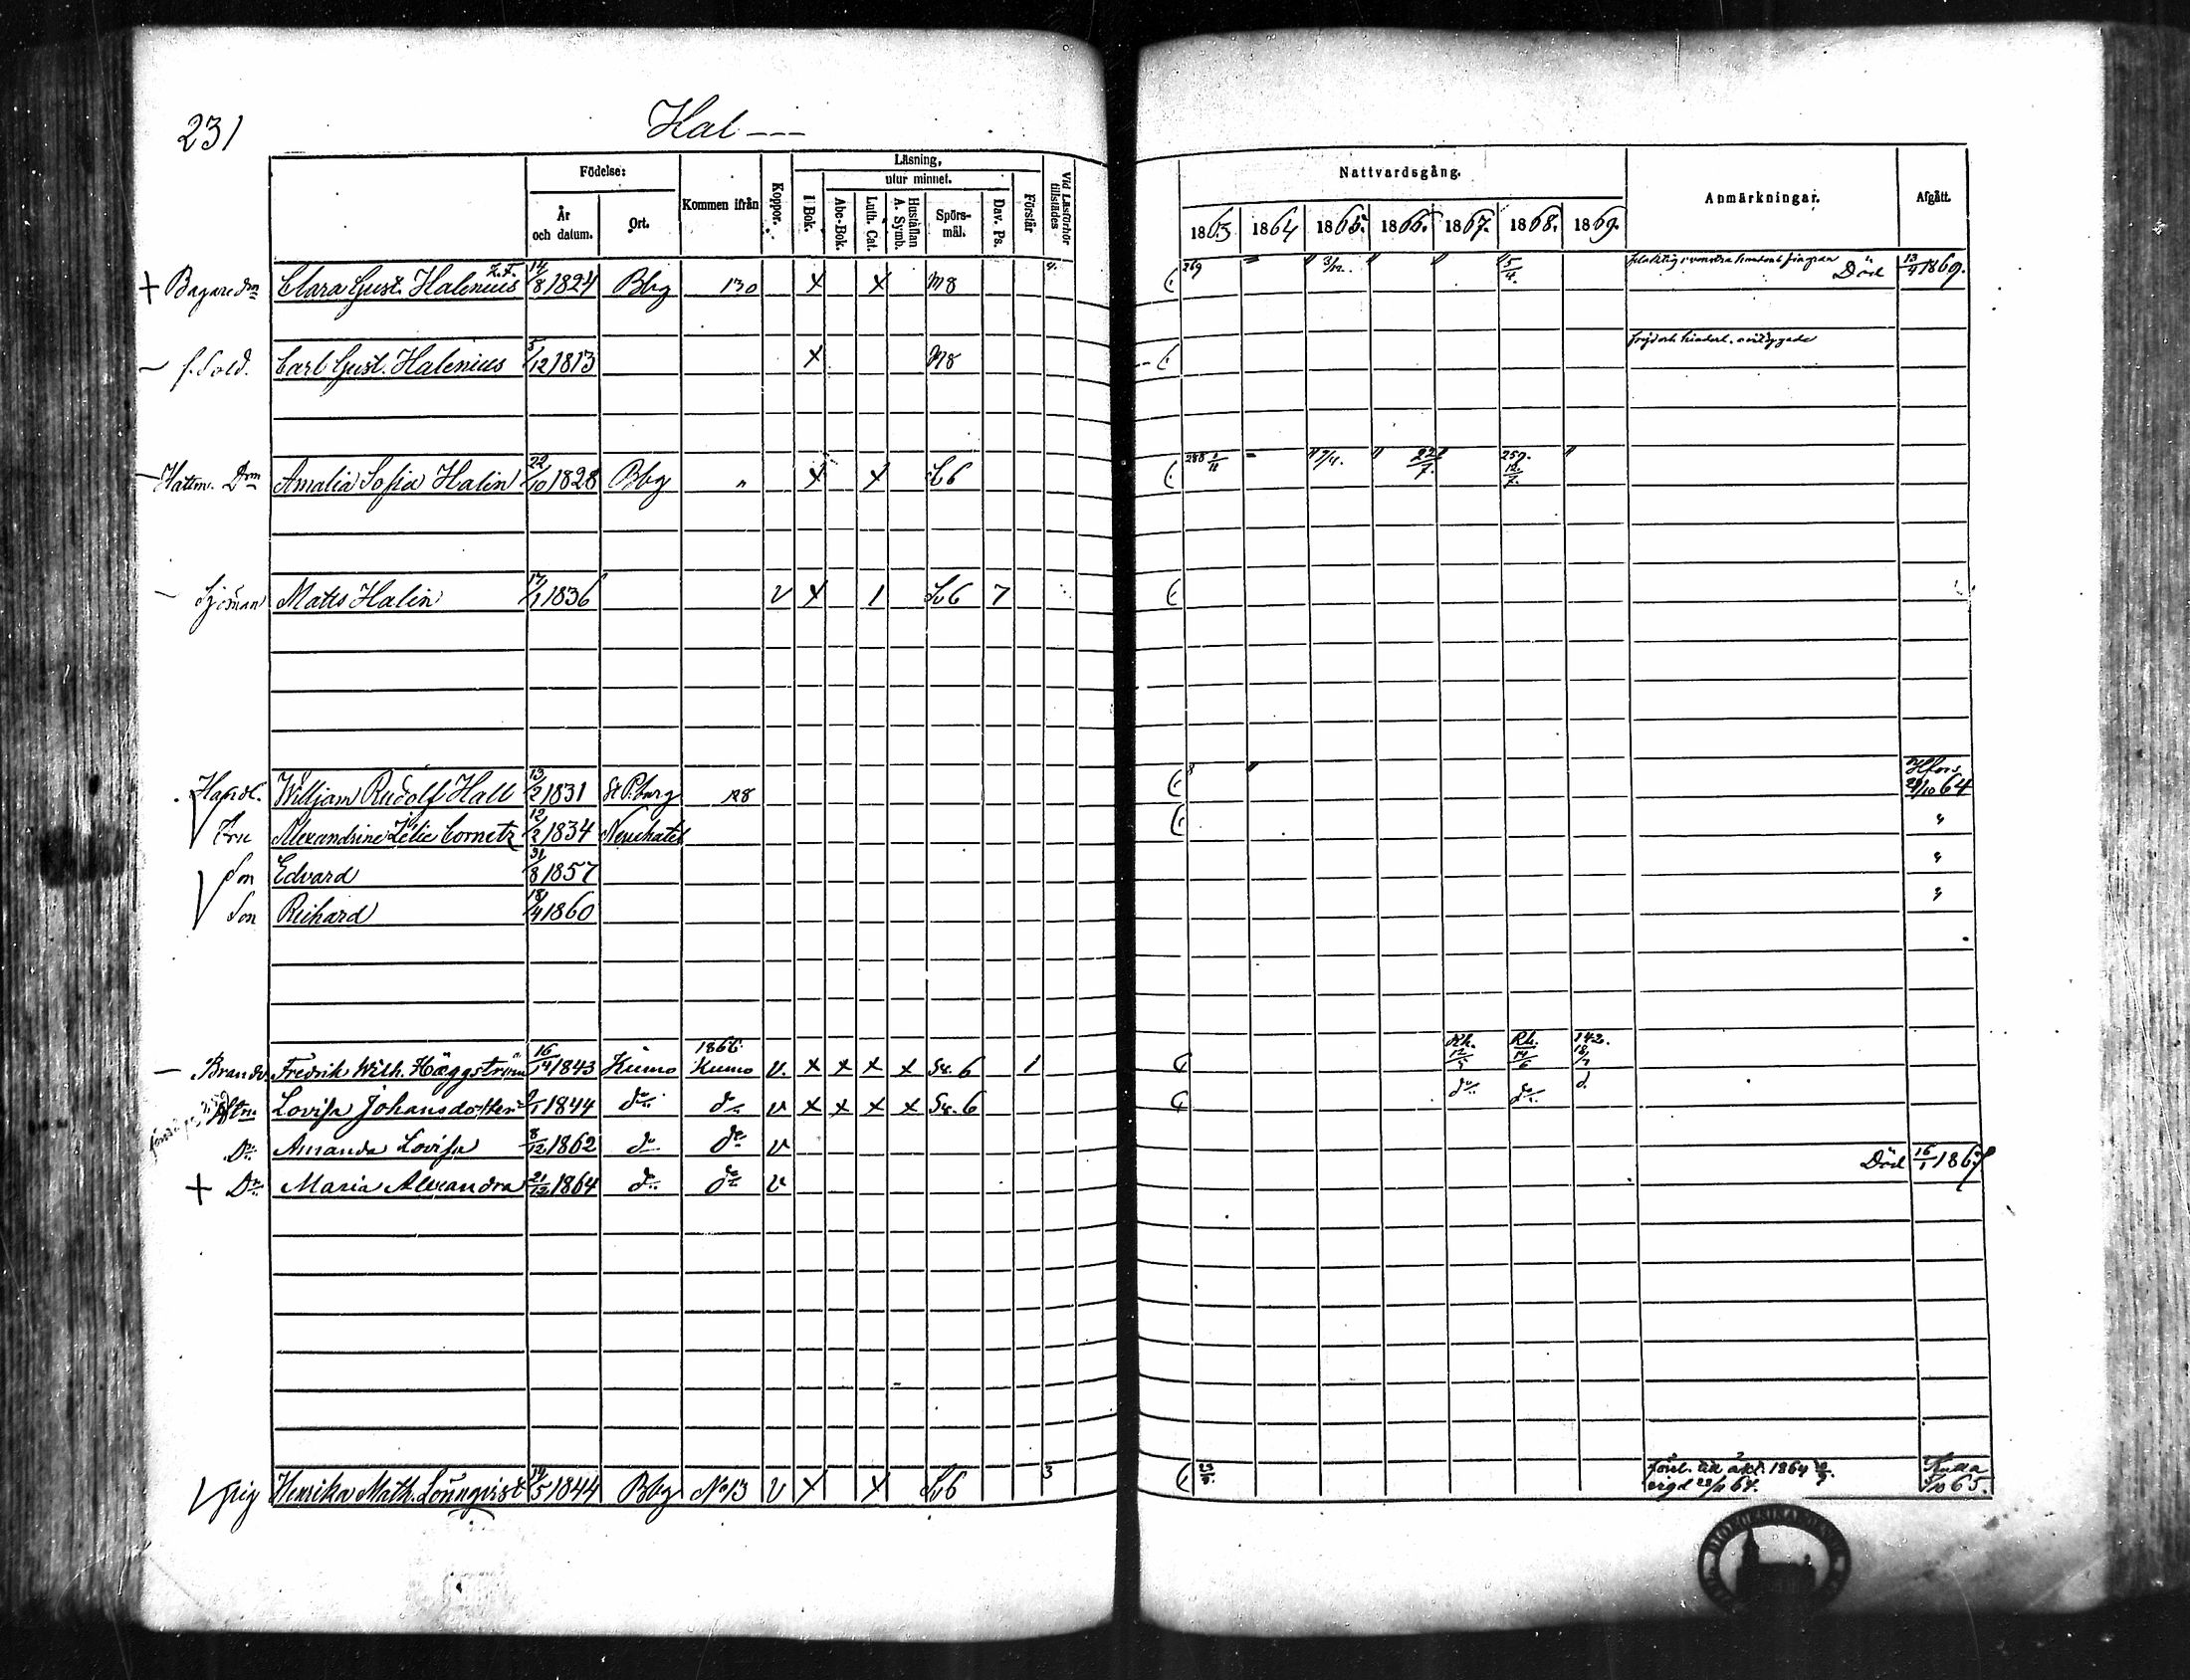 231
Hal ---
Födelse: Kommen ifrån Koppor. Läsning, Vid Läsförhör tillstädes Nattvardsgång. Anmärkningar. Afgått.
utur minnet.
År och datum. Ort. I Bok. Abc-Bok. Luth. Cat. Hustaflan A. Symb. Spörsmål. Dav. Ps. Förstår 1863 1864 1865. 1866. 1867. 1868. 1869.
+ Bagaredr Clara Gust. Halenius 14/8 1824 Bbg 130 X X M8 4. 269 " " 3/12. " " 5/4. Död 13/4 1869.
f. Sold. Carl Gust. Halenius 5/12 1813 X M8
Hattm. Dr Amalia Sofia Halin 22/10 1828 Bbg " X X S6 288 1/11 " " 7/4. " 22/7. 259. "
Sjöman Matts Halin 17/1 1836 V X 1 Sv6 7
Handl. Willjam Rudolf Hall 13/2 1831 St P.burg 128 8 " Hfors 29/10 64
Fru Alexandrine Zélie Cornetz 12/2 1834 Neuchatel "
Son Edvard 31/8 1857 "
Son Richard 18/4 1860 "
Brandv. Fredrik Wilh. Häggström 16/4 1843 Kumo 1866 Kumo v. x x x x Sv. 6 1 Rh. 12/5 Rh. 14/6 142. 18/7
Hu Lovisa Johansdotter 9/1 1844 do do v x x x x Sv. 6 do do d.
Dr Amanda Lovisa 8/12 1862 do do v
+ Dr Maria Alexandra 21/12 1864 do do v Död 16/1 1867
pig Henrika Math. Lönnqvist 14/5 1844 Bbg No 13 V X X Sv6 3 23/8. 1864
vigd 65.